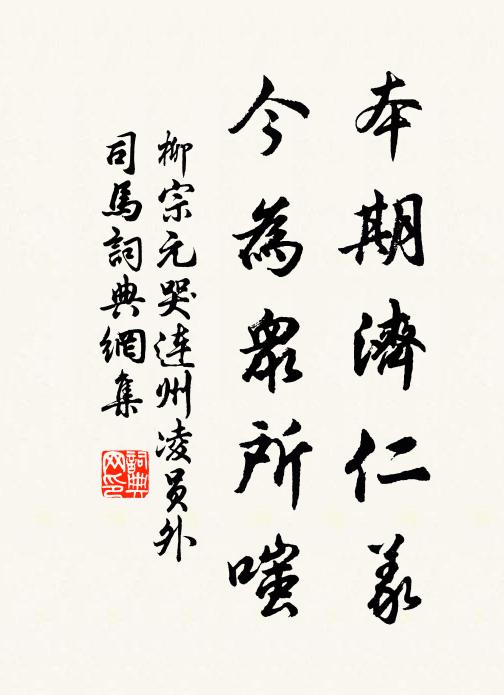 本期濟仁義
今為衆所嗤
柳宗元哭连州凌员外
司馬詞典網集
詞典
网印